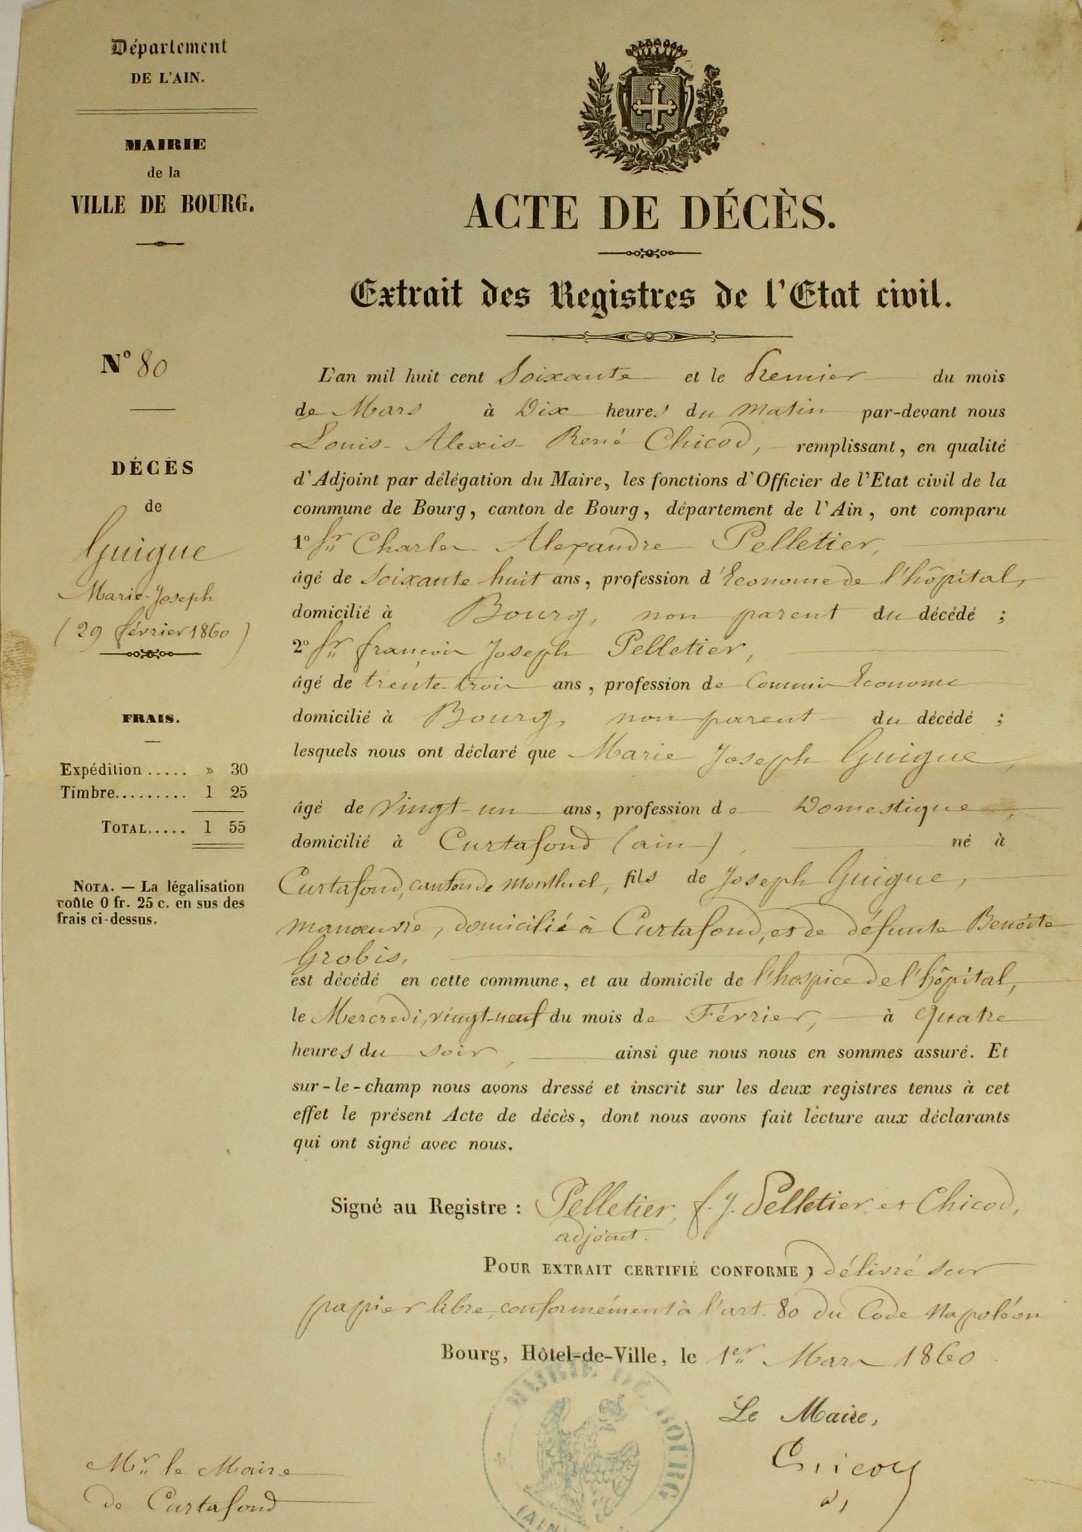 Département
DE L'AIN.
MAIRIE
de la
VILLE DE BOURG.
N° 80
DÉCÈS
de
Guigue
Marie-Joseph
(29 février 1860)
FRAIS.
Expédition ..... » 30
Timbre......... 1 25
TOTAL..... 1 55
NOTA. — La légalisation
coûte 0 fr. 25 c. en sus des
frais ci-dessus.
ACTE DE DÉCÈS.
Extrait des Registres de l'Etat civil.
L'an mil huit cent Soixante et le Premier du mois
de Mars à Dix heures du matin par-devant nous
Louis-Alexis-René Chicod, remplissant, en qualité
d'Adjoint par délégation du Maire, les fonctions d'Officier de l'Etat civil de la
commune de Bourg, canton de Bourg, département de l'Ain, ont comparu
1° Sr Charles Alexandre Pelletier,
âgé de Soixante huit ans, profession d'Econome de l'hôpital,
domicilié à Bourg, non parent du décédé ;
2° Sr françois Joseph Pelletier,
âgé de trente-trois ans, profession de Commis Econome
domicilié à Bourg, non parent du décédé ;
lesquels nous ont déclaré que Marie Joseph Guigue,
âgé de Vingt-un ans, profession de Domestique,
domicilié à Curtafond (ain), né à
Curtafond, canton de Montluel, fils de Joseph Guigue,
manœuvre, domicilié à Curtafond, et de défunte Benoîte
Grobis,
est décédé en cette commune, et au domicile de l'hospice de l'hôpital,
le Mercredi, vingt-neuf du mois de Février, à Quatre
heures du soir, ainsi que nous nous en sommes assuré. Et
sur-le-champ nous avons dressé et inscrit sur les deux registres tenus à cet
effet le présent Acte de décès, dont nous avons fait lecture aux déclarants
qui ont signé avec nous.
Signé au Registre : Pelletier, f. J. Pelletier et Chicod,
adjoint.
POUR EXTRAIT CERTIFIÉ CONFORME, délivré sur
papier libre, conformément à l'art. 80 du Code Napoléon
Bourg, Hôtel-de-Ville, le 1er Mars 1860
Le Maire,
Chicod
MAIRIE DE BOURG
(AIN)
Mr le Maire
de Curtafond